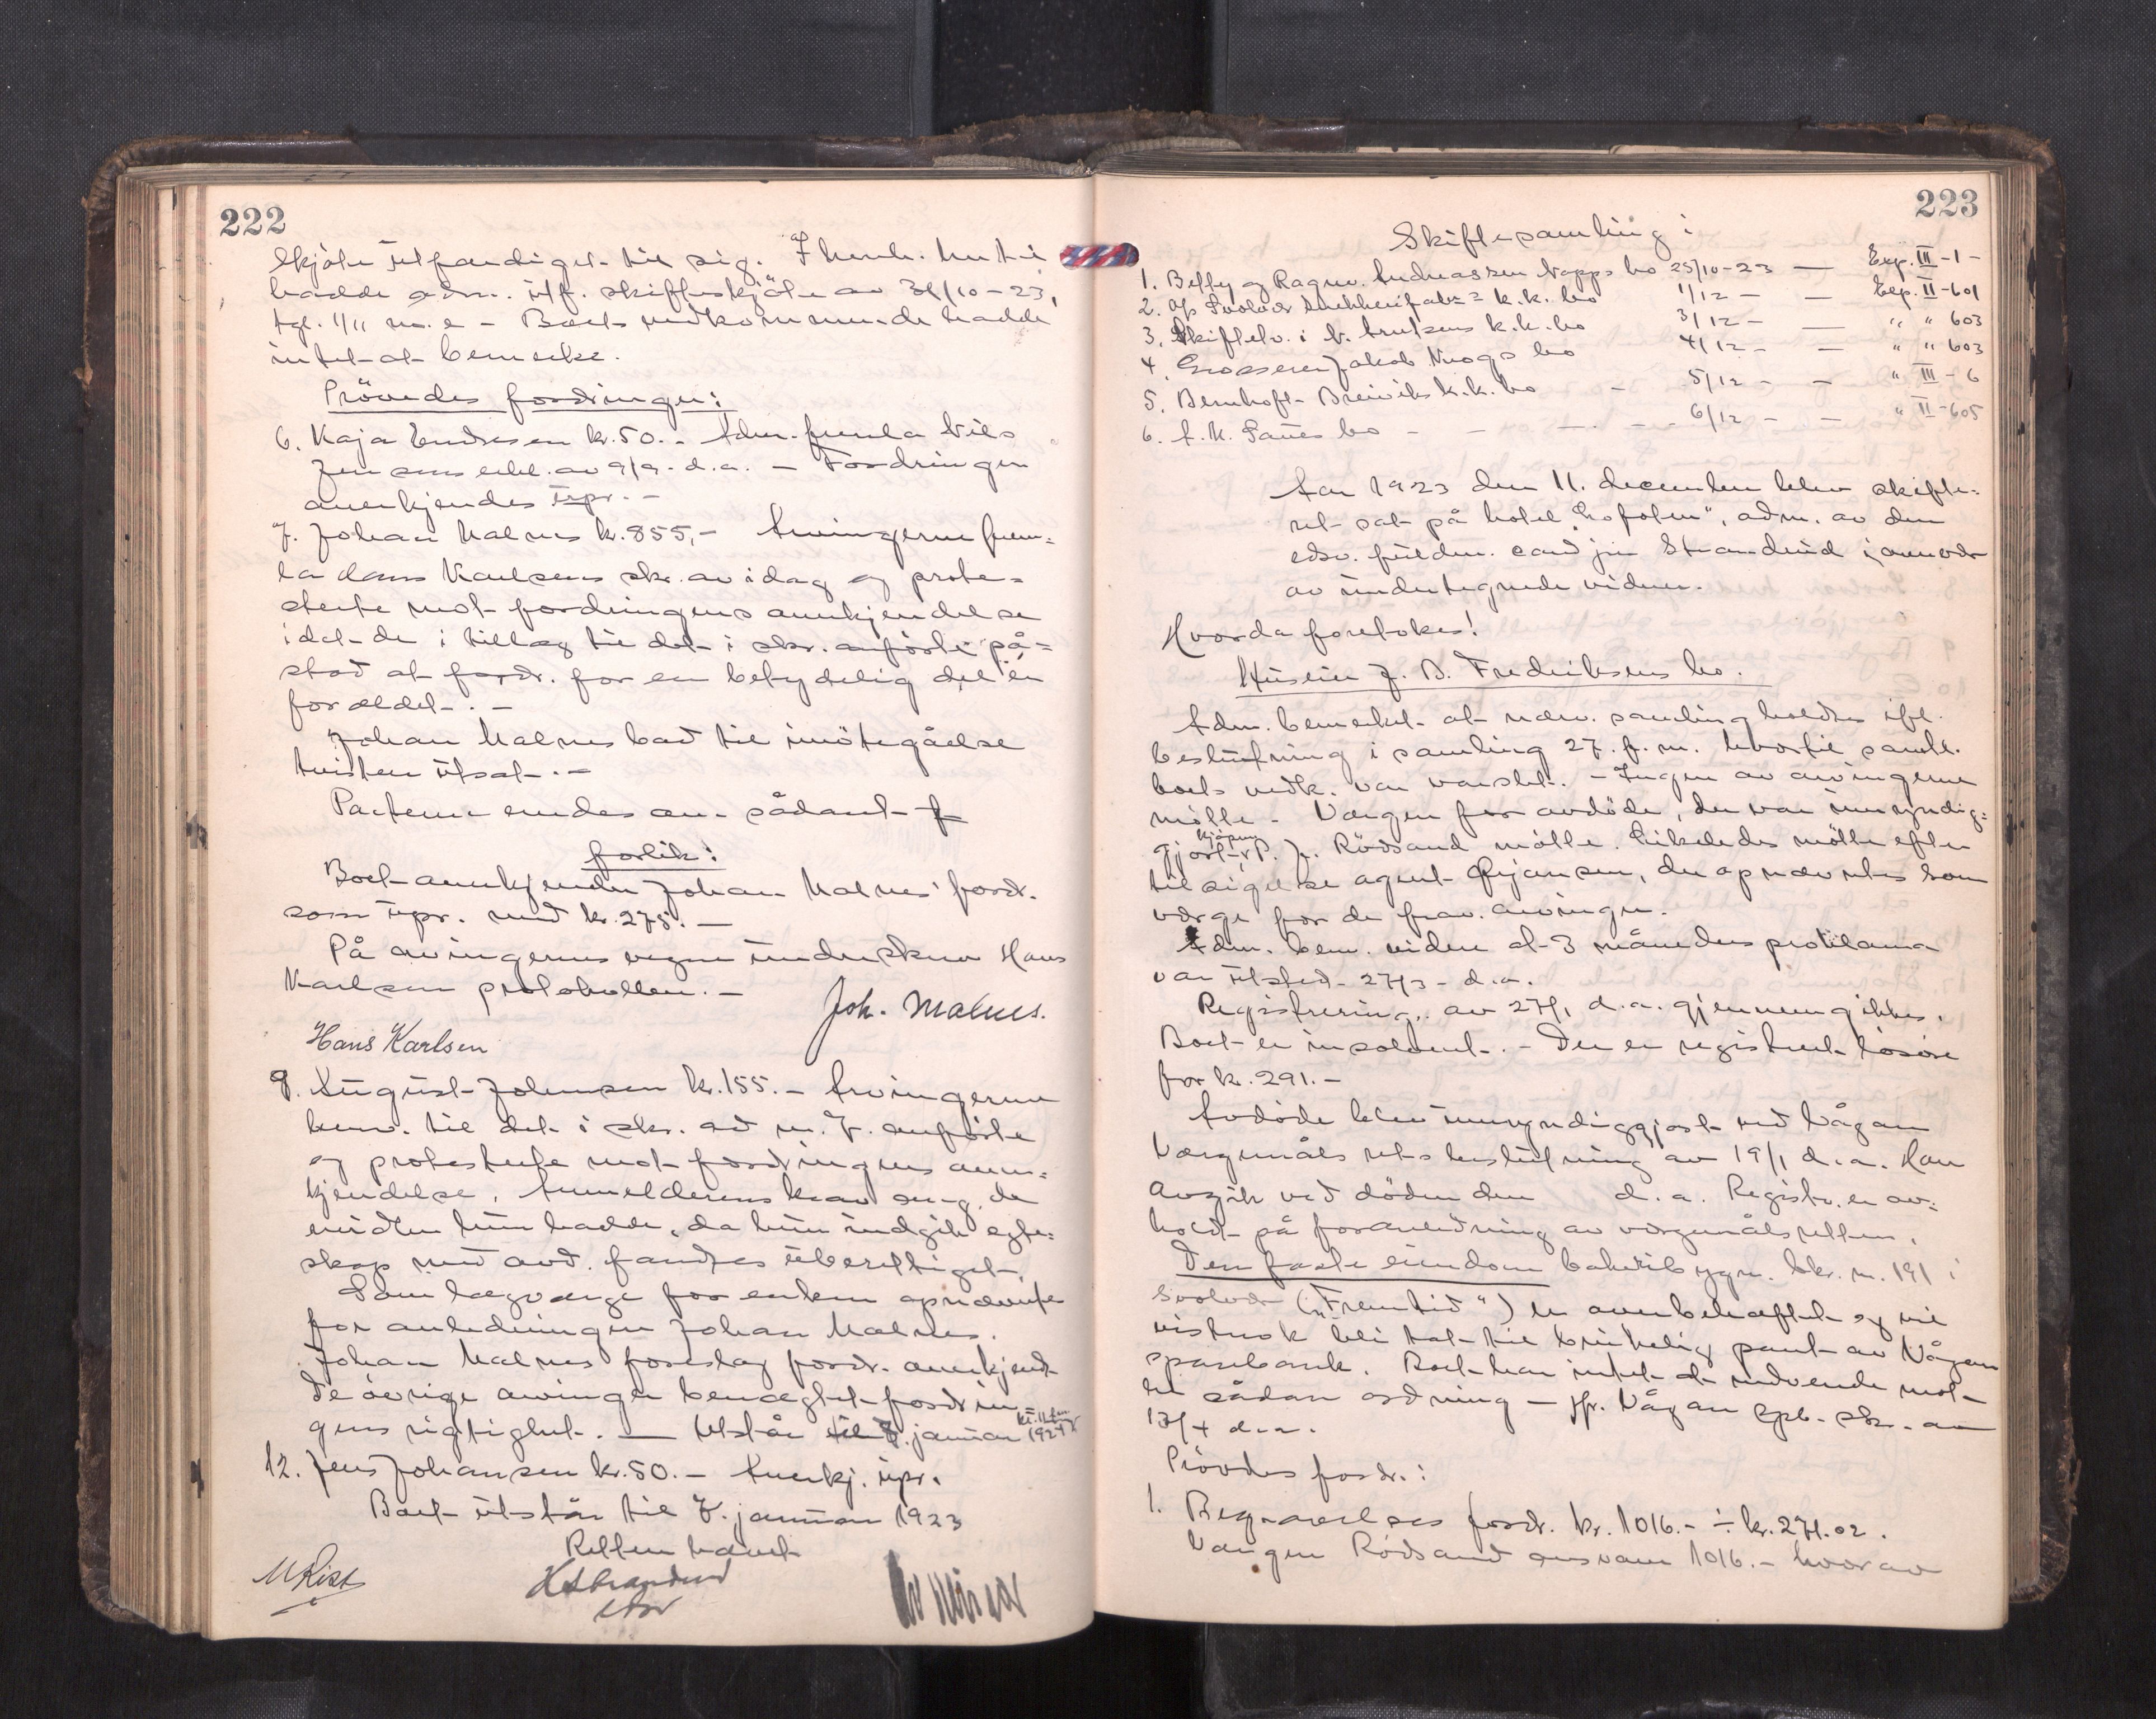 222
skjöte utfærdiget til sig. I henh. hertil
hadde adm. utf. skifteskjöte av 31/10-23,
tgl. 1/11 n.e - Boets vedkommende hadde
intet at bemerke.
Prövedes fordringer:
6. Kaja Endresen kr. 50.- Adm. fremla Nils
Jensens erkl. av 9/9. d.a. - Fordringen
anerkjendes upr. -
7. Johan Malnes kr. 855,- Arvingerne frem-
la Hans Karlsens skr. av idag og prote-
sterte mot fordringens anerkjendelse
idet de i tillæg til det i skr. anförte på-
stod at fordr. for en betydelig del er
forældet. -
Johan Malnes bad til imötegåelse
tvisten utsat. -
Parterne enedes om sådant
forlik:
Boet anerkjender Johan Malnes' fordr.
som upr. med kr. 275. -
På arvingernes vegne underskrev Hans
Karlsen protokollen. -
Joh. Malnes.
Hans Karlsen
9. August Johnsen kr. 155. - Arvingerne
henv. til det i skr. ad nr. 7. anförte
og protesterte mot fordringens aner-
kjendelse. Anmelderens krav på de
midler hun hadde, da hun indgik egte-
skap med avd. fandtes uberettiget.
Som lagverge for enken opnævntes
for anledningen Johan Malnes.
Johan Malnes foreslog fordr. anerkjendt
De övrige arvinger benægtet fordrin-
gens rigtighet. - Utstår til 7. januar 1924 kl. 11 fm.
12. Jens Johansen kr. 50. - Anerkj. upr.
Boet utstår til 7. januar 1923
Retten hævet
H Strandrud
223
Skiftesamling i
1. Betty og Ragnv. Andreassen Napps bo 25/10-23 — Exp. III-1-
2. A/s Svolvær k.k. bo 1/12 - — Exp. II-601
3. Skiftelv. i N. Arntsens k.k. bo 3/12 - — " " 603
4. Grosserer Jakob Kuogs bo 4/12 - — " " 603
5. Bernhoft Breiviks k.k. bo - 5/12 - - " III - 6
6. A. M. bo - - - - 6/12 - — " II-605
Aar 1923 den 11. december blev skifte-
ret sat på hotel "Lofoten", adm. av den
edsv. fuldm. cand jur Strandrud i nærvær
av undertegnede vidner.
Hvorda foretokes!
Huseier J. B. Fredriksens bo.
Adm. bemerket at nærv. samling holdes ifl.
beslutning i samling 27. f. m. hvortil samtl.
boets vedk. var varslet. - Ingen av arvingerne
mötte. Vergen for avdöde, der var umyndig-
gjort - kjöpm. P. Jr. Rödsand mötte. Likeledes mötte efter
tilsigelse agent Ørjansen, der opnævntes som
verge for de frav. arvinger.
Adm. bem. videre at 3 måneders proklama
var utsted. 27/3 - d.a.
Registrering av 27/1 d.a. gjennemgikkes.
Boet er insolvent. - Der er registrert lösöre
for kr. 291. -
Avdöde blev umyndiggjort ved Vågan
Vergemåls rets beslutning av 19/1 d.a. Han
avgik ved döden den d.a. Registr. er av-
holdt på foranledning av vergemålsretten.
Den faste eiendom bakeribygn. bkr. nr. 191 i
Svolvær ("Fremtid") er overbeheftet og vil
vistnok bli tat til brukelig pant av Vågan
sparebank. Boet har intet at indvende mot
en sådan ordning - jfr. Vågan spb. skr. av
13/4 d.a.
Prövedes fordr.:
1. Begravelses fordr. kr. 1016.- ÷ kr. 271.02.
Vergen Rödsand 1016.- hvorav